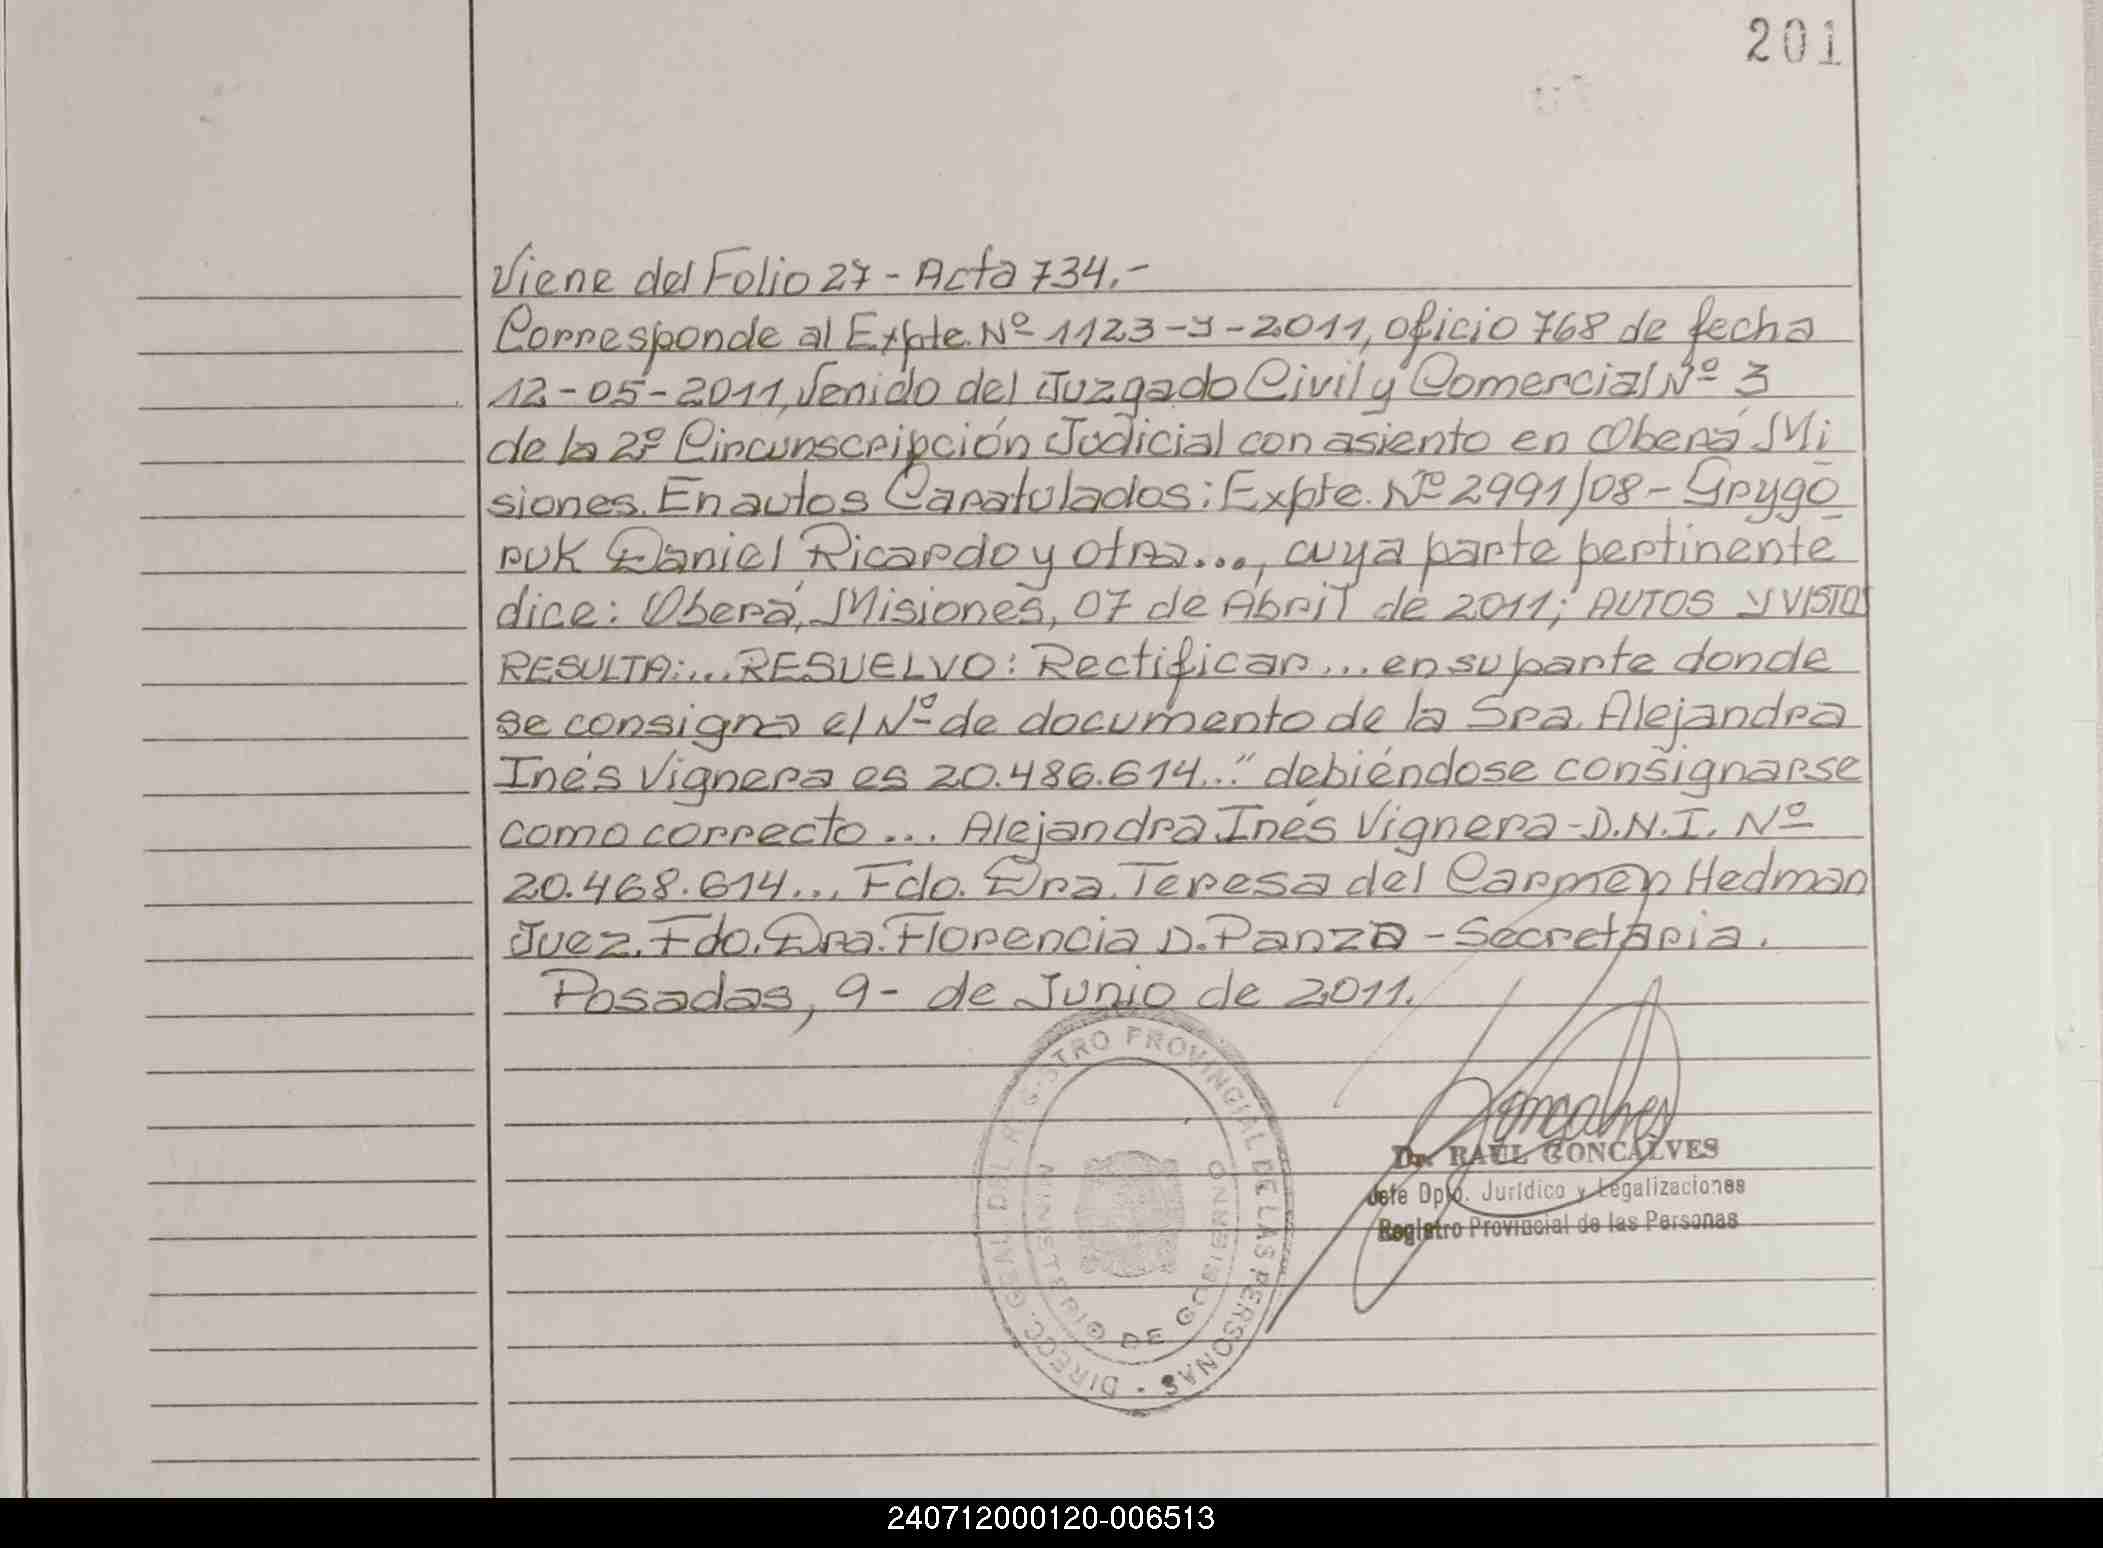 201
Viene del Folio 27 - Acta 734.-
Corresponde al Expte. Nº 1123-Y-2011, oficio 768 de fecha
12-05-2011, venido del Juzgado Civil y Comercial Nº 3
de la 2º Circunscripción Judicial con asiento en Oberá Mi
siones. En autos Caratulados: Expte. Nº 2991/08 - Grygo
ruk Daniel Ricardo y otra..., cuya parte pertinente
dice: Oberá, Misiones, 07 de Abril de 2011; AUTOS Y VISTOS
RESULTA:... RESUELVO: Rectificar... en su parte donde
se consigna el Nº de documento de la Sra. Alejandra
Inés Vignera es 20.486.614..." debiéndose consignarse
como correcto... Alejandra Inés Vignera - D.N.I. Nº
20.468.614... Fdo. Dra. Teresa del Carmen Hedman
Juez. Fdo. Dra. Florencia D. Panza - Secretaria.
Posadas, 9 - de Junio de 2011.
DIRECC. GRAL. DEL REGISTRO PROVINCIAL DE LAS PERSONAS
MINISTERIO DE GOBIERNO
Goncalves
Dr. RAUL GONCALVES
Jefe Dpto. Jurídico y Legalizaciones
Registro Provincial de las Personas
240712000120-006513